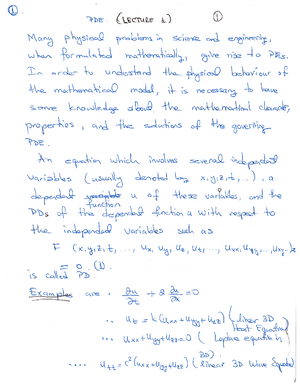 ①
PDE. (LECTURE 1) ①
Many physical problems in science and engineering,
when formulated mathematically, give rise to PDEs.
In order to understand the physical behaviour of
the mathematical model, it is necessary to have
some knowledge about the mathematical character,
properties, and the solutions of the governing
PDE.
An equation which involves several independent
variables (usually denoted by x, y, z, t, ...), a
dependent function u of these variables, and the
PDs of the dependent function u with respect to
the independent variables such as
F (x, y, z, t, ..., ux, uy, uz, ut, ..., uxx, uyy, ..., uxy, ..)
= 0. (1)
is called PD
Examples are · ∂u/∂t + 2 ∂u/∂x = 0
.. ut = k(uxx + uyy + uzz) (linear 3D
Heat Equation)
... uxx + uyy + uzz = 0 (Laplace equation in
3D)
.... utt = c²(uxx + uyy + uzz) (linear 3D Wave Equation)